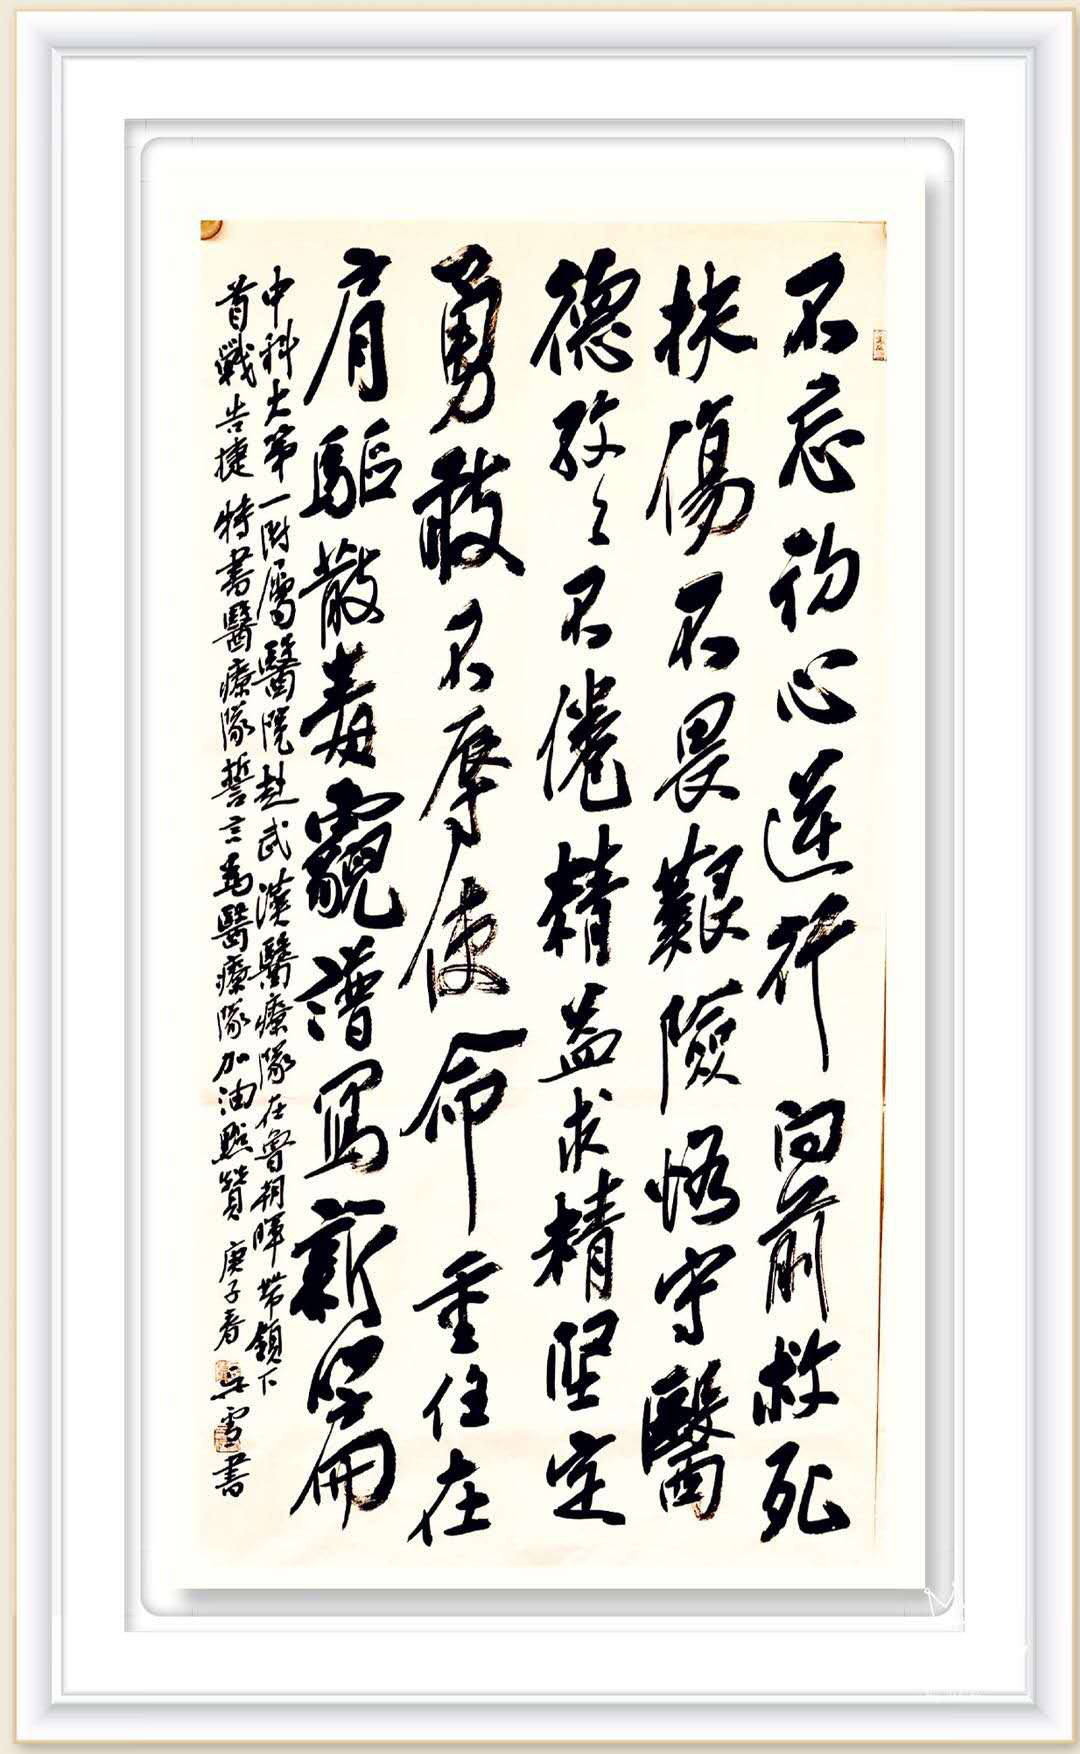 不忘初心逆行向前救死
扶傷不畏艱險恪守醫
德孜々不倦精益求精堅定
勇敢不辱使命重任在
肩驅散毒霾譜寫新篇
中科大第一附屬醫院赴武漢醫療隊在魯朝暉帶領下
首戰告捷特書醫療隊誓言為醫療隊加油點贊庚子春雪書